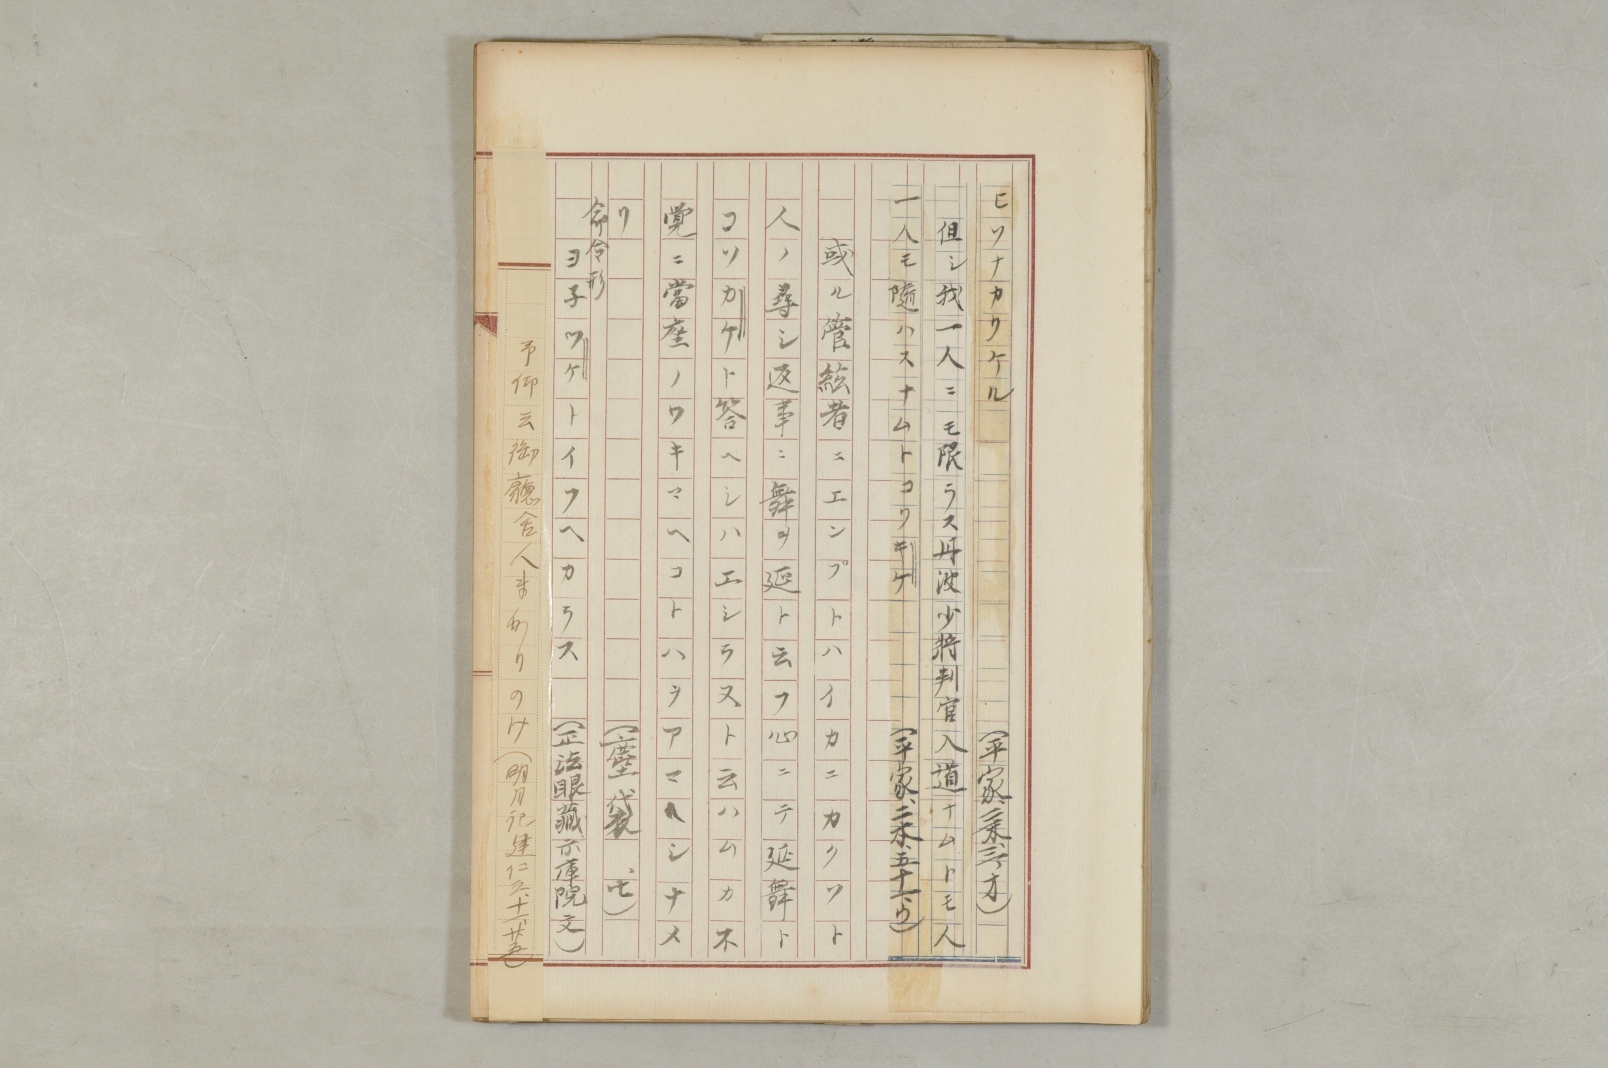 ヒツナカリケル　(平家、二末、三、オ)
但シ我一人ニモ限ラス丹波少將判官入道ナムトモ人
一人モ隨ハスナムトコリキケ　(平家、二末、五十六、ウ)
或ル管絃者ニエンプトハイカニカクソト
人ノ尋シ返事ニ舞ヲ延ト云フ心ニテ延舞ト
コソカケト答ヘシハエシラヌト云ハムカネ
覺ニ當座ノワキマヘコトハヲアマ\シナメ
リ　(塵袋、七)
命令形
ヨ子ツケトイフヘカラス　(正法眼藏示庫院文)
予仰云御廳舍人まかりのけ(明月記建仁三、十一、廿五)